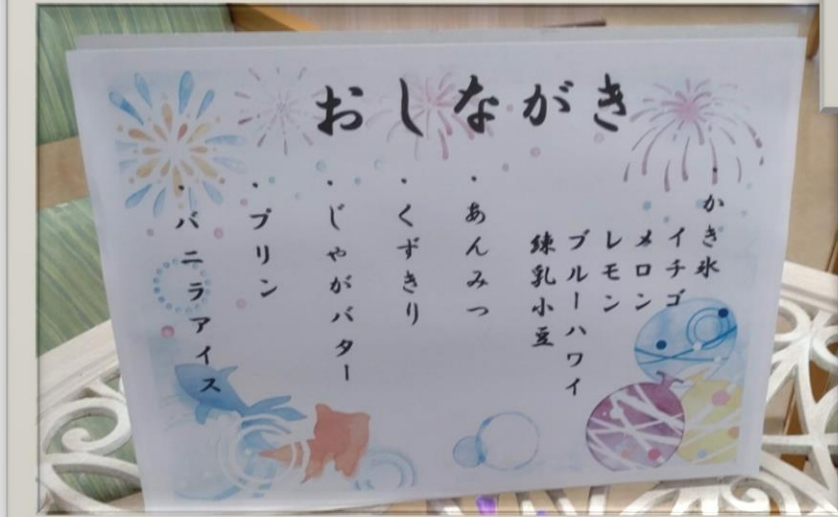 おしながき
・かき氷
イチゴ
メロン
レモン
ブルーハワイ
練乳小豆
・あんみつ
・くずきり
・じゃがバター
・プリン
・バニラアイス